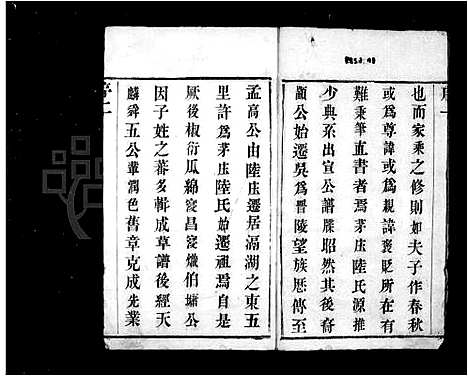 也而家乘之修則如夫子作春秋
或為尊諱或為親諱褒貶所在有
難秉筆直書者焉茅庄陸氏源推
少典系出宣公譜牒昭然其後裔
顗公始遷吳為晋陵望族厯傳至
孟高公由陸庄遷居滆湖之東五
里許為茅庄陸氏始遷祖焉自是
厥後椒衍瓜綿寖昌寖熾伯墉公
因子姓之蕃多輯成草譜後經天
麟舜五公輩潤色舊章克成先業
序二